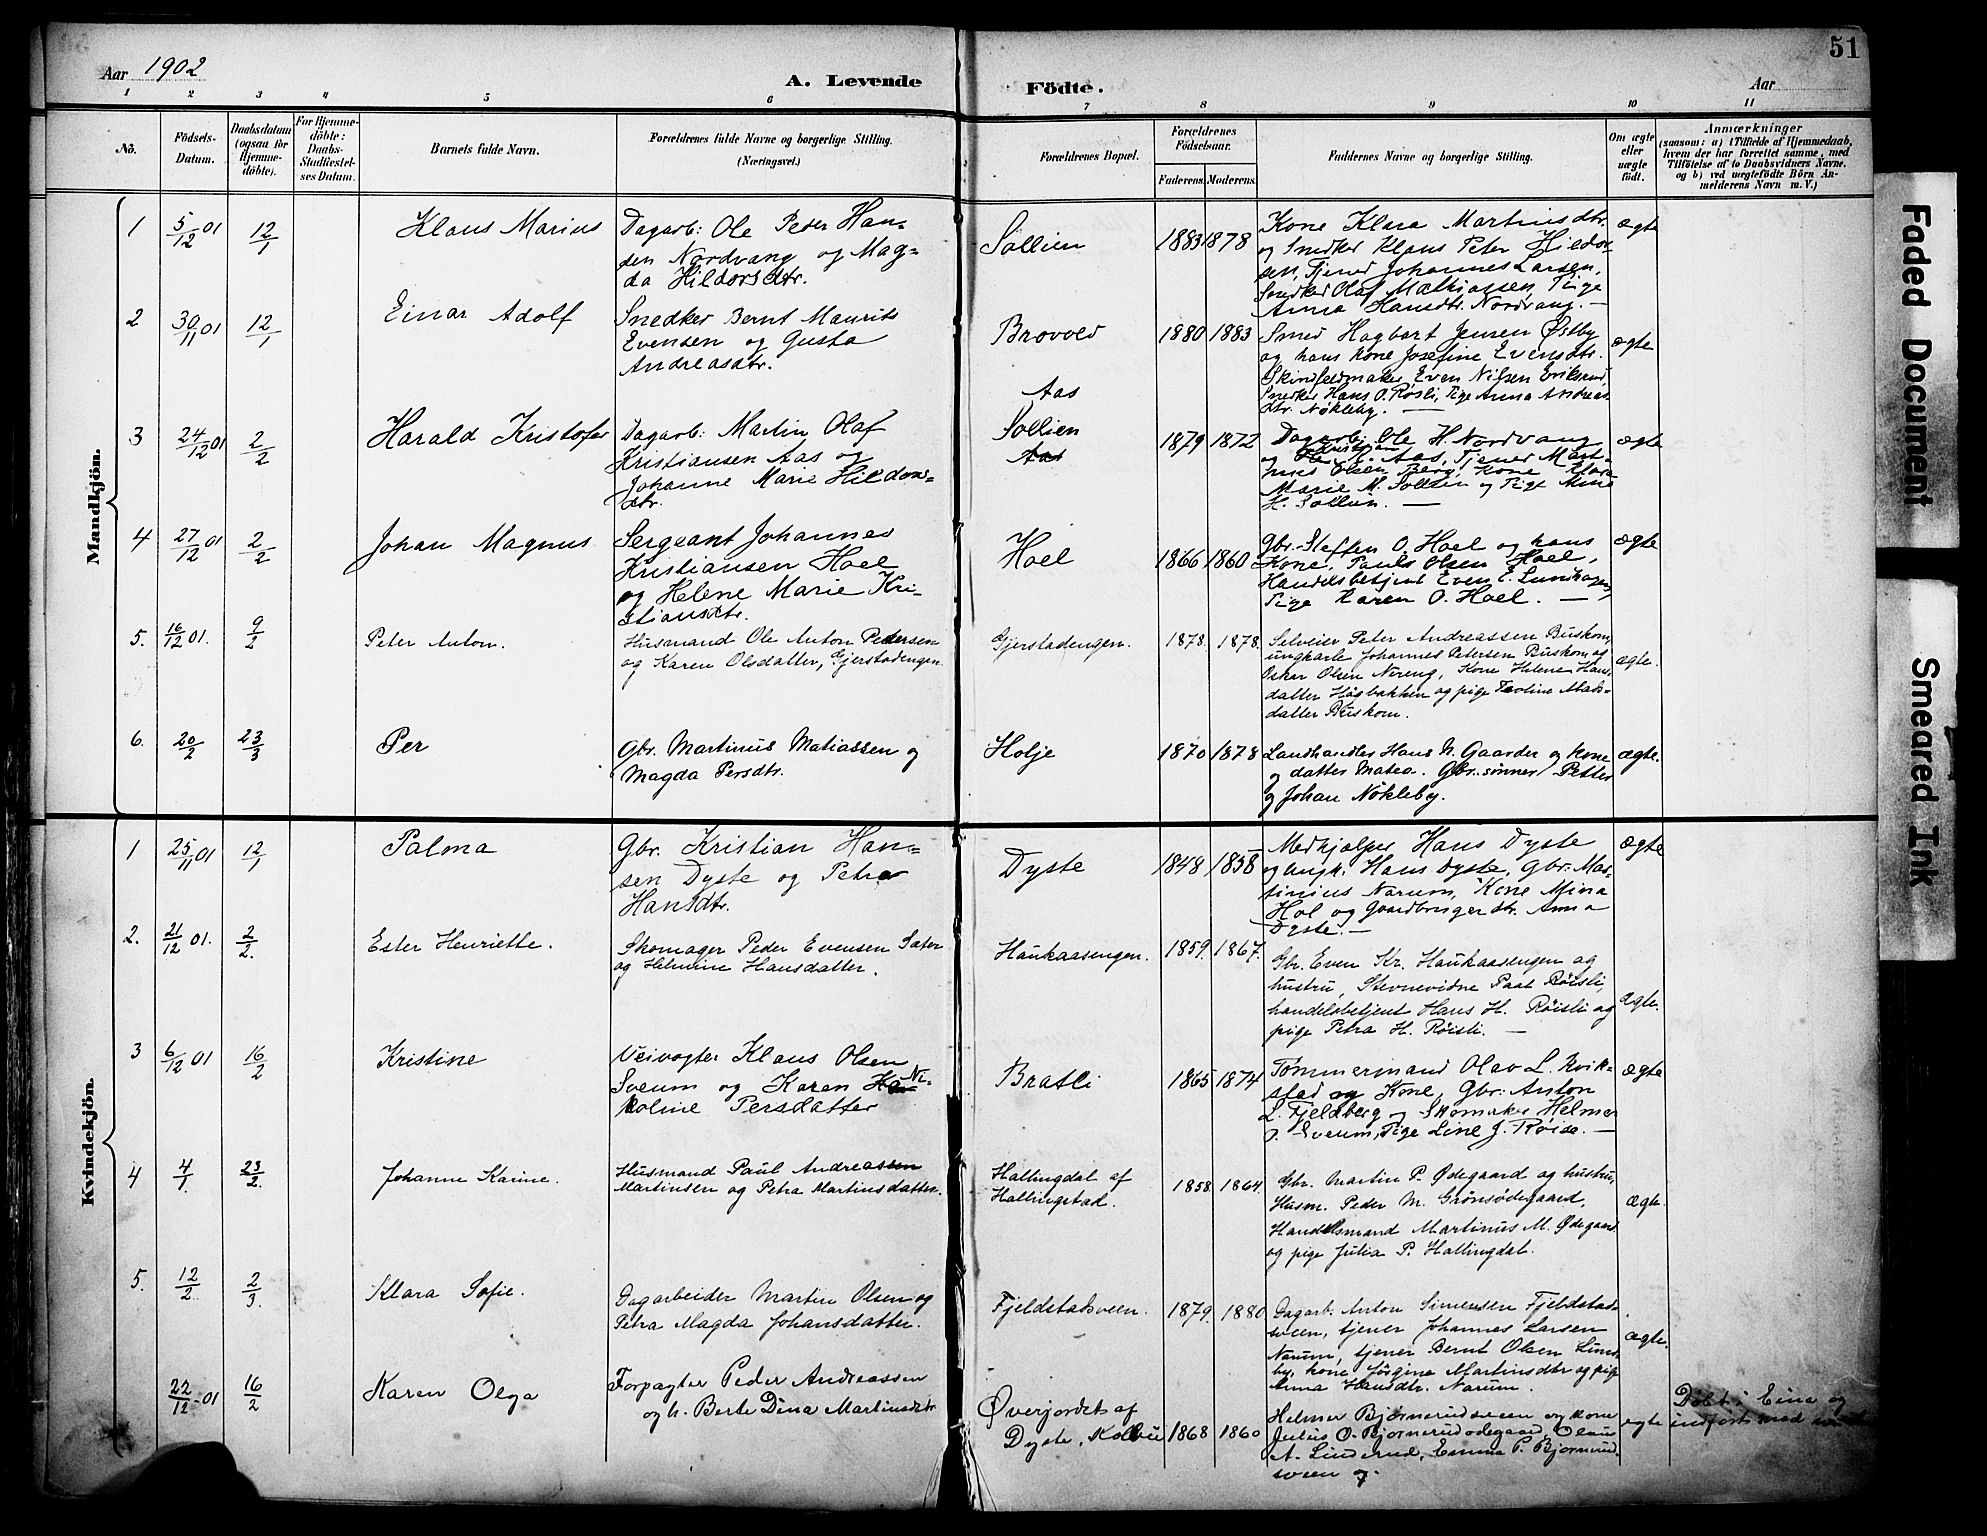 Aar 1902
A. Levende Födte.
Aar
51
1 2 3 4 5 6 7 8 9 10 11
No.
Födsels-Datum.
Daabsdatum (ogsaa for Hjemme-döbte).
For Hjemme-döbte: Daabs-Stadfæstel-ses Datum.
Barnets fulde Navn.
Forældrenes fulde Navne og borgerlige Stilling.
(Næringsvei.)
Forældrenes Bopæl.
Forældrenes Födselsaar.
Faderens. Moderens.
Faddernes Navne og borgerlige Stilling.
Om ægte eller uægte födt.
Anmærkninger
(saasom: a) i Tilfælde af Hjemmedaab,
hvem der har forrettet samme, med
Tilföielse af to Daabsvidners Navne,
og b) ved uægtefödte Börn An-
melderens Navn m. V.)
Mandkjön.
1 5/12 01 12/1 Klaus Marius
Dagarb: Ole Peter Han-
sen Nordvang og Mag-
da Hildorsdtr.
Sollien 1883 1878
Kone Klara Martinsdtr.
og Snedker Klaus Peter Hildor-
sen, Tjener Johannes Larsen,
Snedker Olaf Mathiassen, Pige
Anna Hansdtr. Nordvang. —
ægte
2 30/11 01 12/1 Einar Adolf
Snedker Bernt Maurits
Evensen og Gusta
Andreasdtr.
Brovold 1880 1883
Smed Hagbart Jensen Østby
og hans Kone Josefine Evensdtr.
Skindfeldmaker Even Nilsen Eriksrud,
Snedker Hans O. Røsli, Pige Anna Andreas
dtr. Nøkleby. —
ægte
3 24/12 01 2/2 Harald Kristofer
Dagarb: Martin Olaf
Kristiansen Aas og
Johanne Marie Hildors-
dtr.
Aas
Sollien
Aas
1879 1872
Dagarb: Ole H. Nordvang
og Kristian K. Aas, Tjener Mart-
inus Olsen Berg, Kone Klara
Marie M. Sollien og Pige Mina
H. Sollien. —
ægte
4 27/12 01 2/2 Johan Magnus
Sergeant Johannes
Kristiansen Hoel
og Helene Marie Kri-
stiansdtr.
Hoel 1866 1860
Gbr. Steffen O. Hoel og hans
Kone, Pauls Olsen Hoel,
Handelsbetjent Even E. Lundhagen,
Pige Karen O. Hoel. —
ægte
5. 16/12 01. 9/2 Peter Anton.
Husmand Ole Anton Pedersen
og Karen Olsdatter, Gjerstadengen.
Gjerstadengen. 1878. 1878.
Selveier Peter Andreassen Buskom,
ungkarle Johannes Petersen Buskom og
Oskar Olsen Nereng, Kone Helene Hans-
datter Høgbakken og pige Teoline Mads-
datter Buskom.
ægte.
6. 20/2 23/3 Per
Gbr. Martinus Matiassen og
Magda Persdtr.
Holje 1870 1878
Landhandler Hans N. Gaarder og kone
og datter Matea. Gbr.sønner Petter
og Johan Nøkleby.
ægte.
Kvindekjön.
1 25/11 01 12/1 Palma
Gbr. Kristian Han-
sen Dyste og Petra
Hansdtr.
Dyste 1848 1858
Medhjælper Hans Dyste
og ungk. Hans Dyste, Gbr. Mar-
tinius Narum, Kone Mina
Hol og Gaardbrugerdtr. Anna
Dyste. —
ægte
2. 21/12 01. 2/2. Ester Henriette.
Skomager Peder Evensen Sater
og Helmine Hansdatter.
Haukaasengen. 1859. 1867.
Gbr. Even Kr. Haukaasengen og
hustru, Stevnevidne Paul Røisli,
handelsbetjent Hans H. Røisli og
pige Petra H. Røisli. —
ægte.
3 6/12 01 16/2 Kristine
Veivogter Klaus Olsen
Sveum og Karen Ni-
koline Persdatter
Bratli 1865 1874
Tømmermand Olav L. Kvik-
stad og Kone, Gbr. Anton
L. Fjeldberg og Skomaker Helmer
O. Sveum, Pige Line J. Røise. —
ægte
4 4/1 23/2. Johanne Karine.
Husmand Paul Andreassen
Martinsen og Petra Martinsdatter.
Hallingdal af
Hallingstad.
1858. 1864.
Gbr. Martin P. Ødegaard og hustru,
Husm. Peder M. Grønsødegaard,
Handelsmand Martinus M. Ødegaard
og pige Julia P. Hallingdal.
ægte.
5. 12/2. 2/3. Klara Sofie.
Dagarbeider Martin Olsen og
Petra Magda Johansdatter.
Fjeldstadsveen. 1879. 1880.
Dagarb. Anton Simensen Fjeldstad-
sveen, tjener Johannes Larsen
Narum, tjener Bernt Olsen Lund-
by, kone Jørgine Martinsdtr og pige
Anna Hansdtr. Narum.
ægte.
22/12 - 01 16/2 Karen Olga
Forpagter Peder Andreassen
og h. Berte Dina Martinsdtr
Øverjordet af
Dyste, Kolbu
1868 1860
Helmer Bjørnerudsveen og kone
Julius O. Bjørnerudødegaard, Olaus
A. Linderud, Emma P. Bjørnerud-
sveen og
ægte
Døbt i Eina og
indført med
Faded Document
Smeared Ink